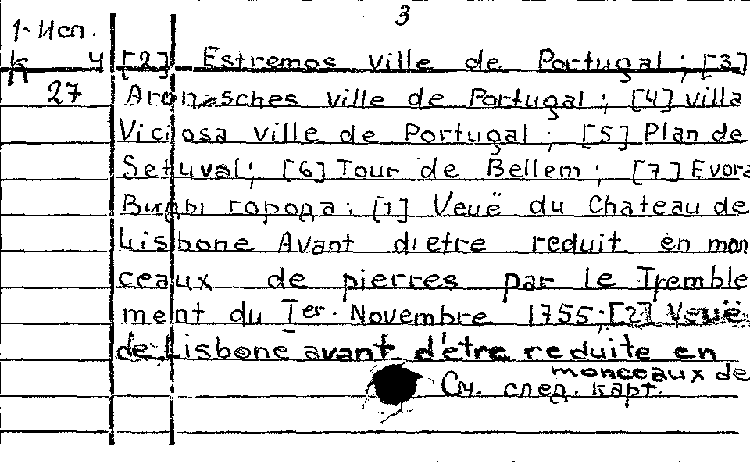 3
1-Ин.
К 4 [2] Estremos ville de Portugal; [3]
27 Aronsches ville de Portugal; [4] villa
Viciosa ville de Portugal; [5] Plan de
Setuval; [6] Tour de Bellem; [7] Evora
Виды города: [1] Veuë du Chateau de
Lisbone Avant d'etre reduit en mon
ceaux de pierres par le Tremble
ment du Ier. Novembre 1755; [2] Veuë
de Lisbone avant d'etre reduite en
monceaux de
См. след. карт.